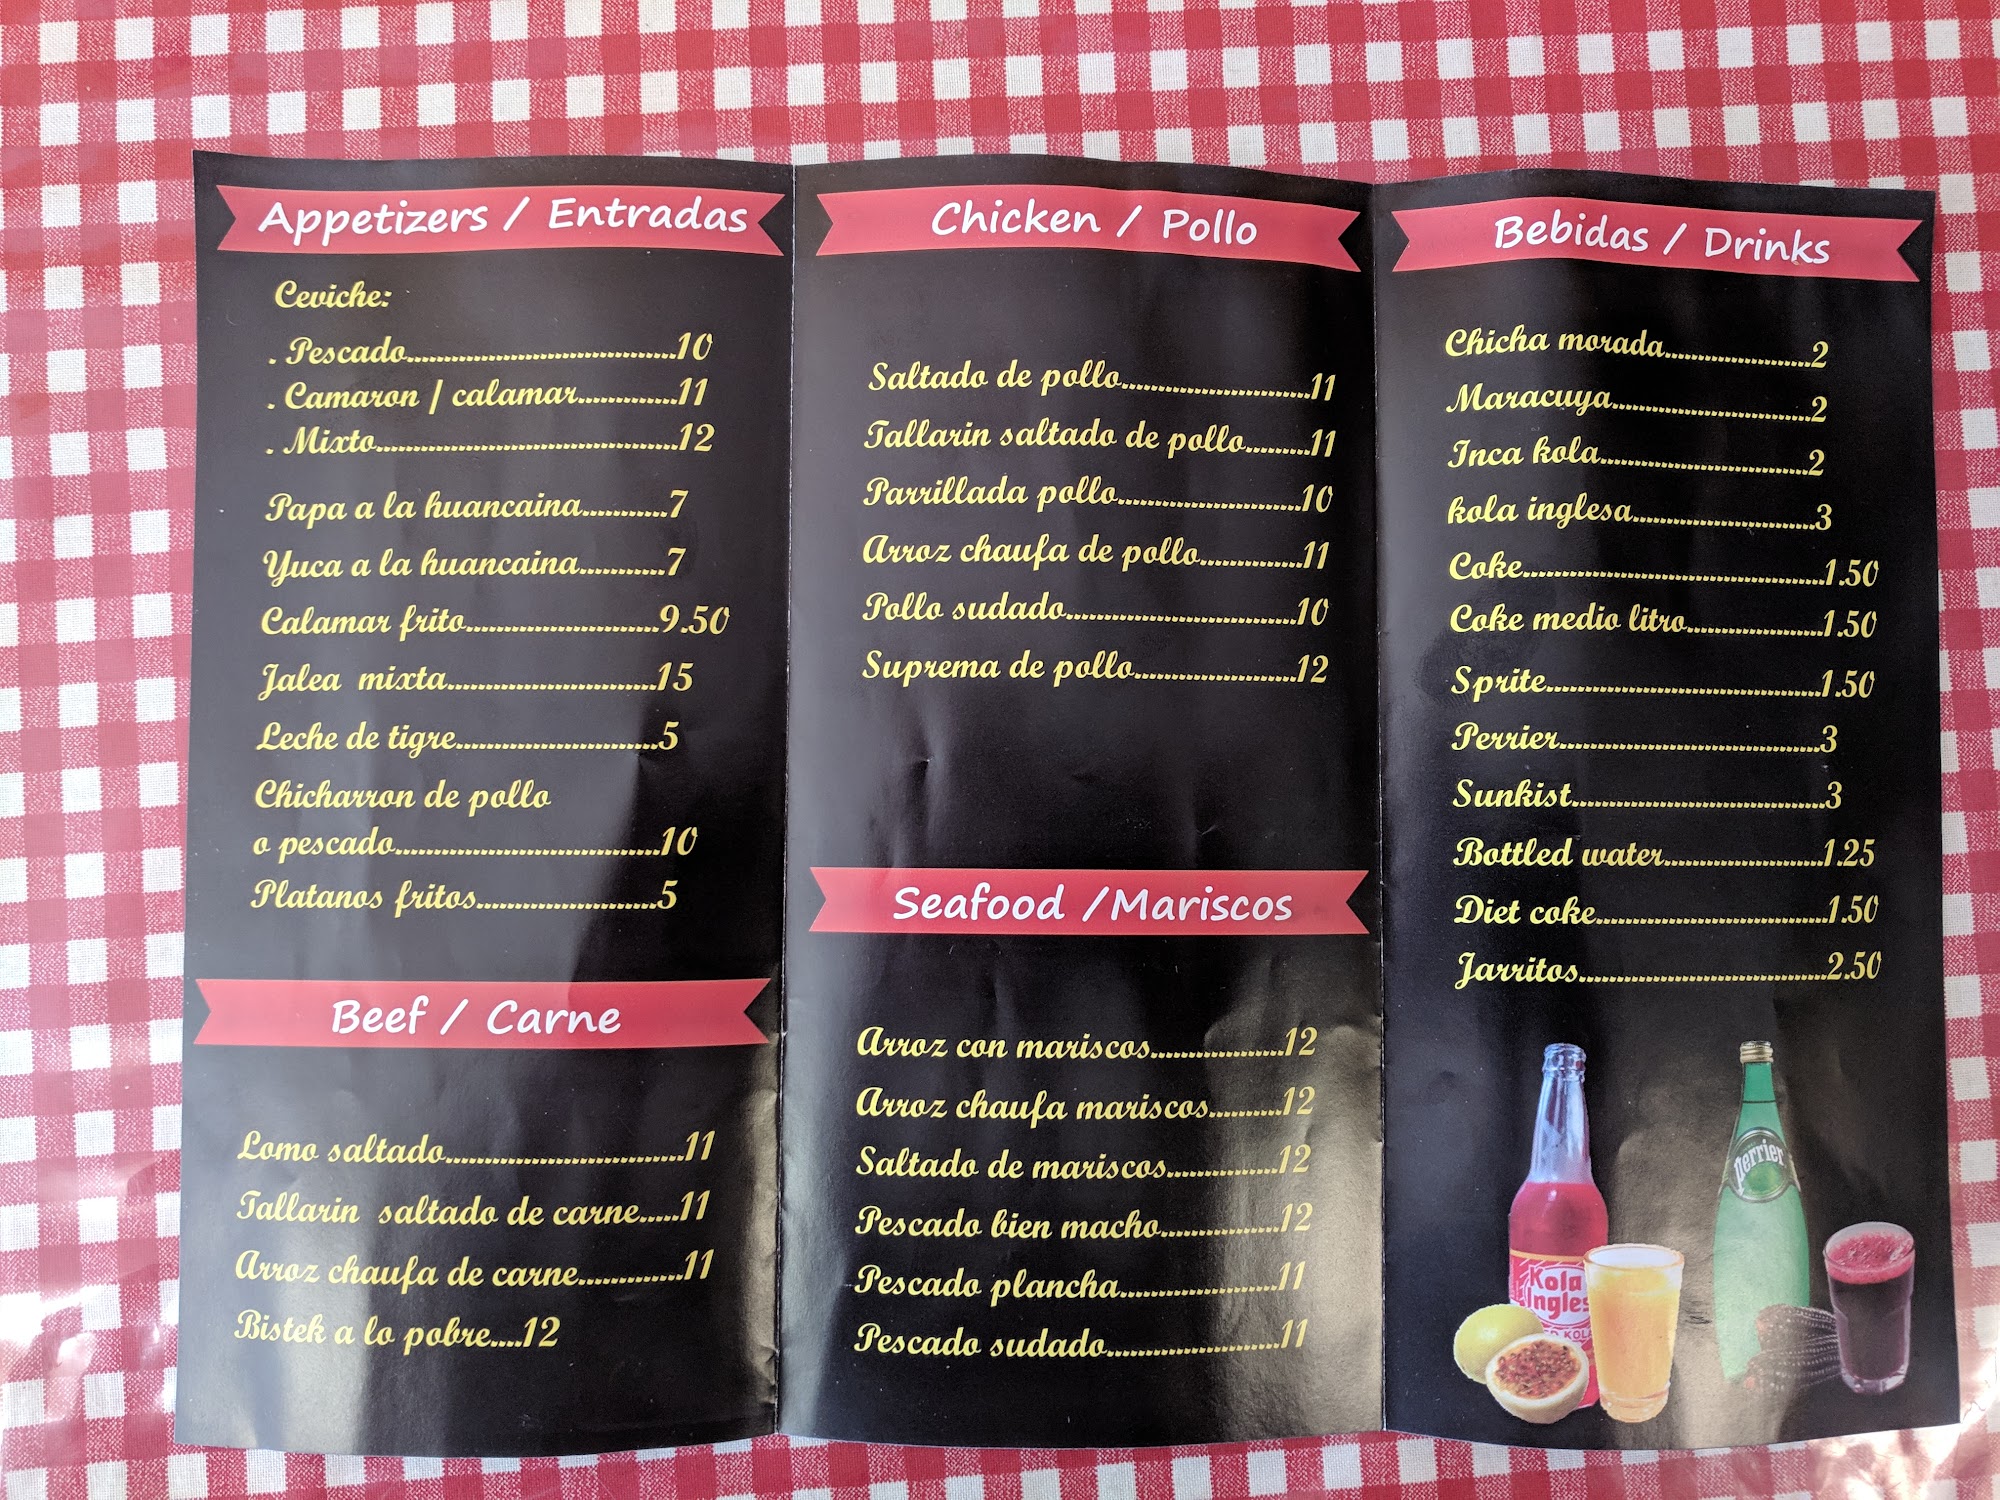 Appetizers / Entradas
Ceviche:
. Pescado...................................10
. Camaron / calamar.............11
. Mixto.......................................12
Papa a la huancaina...........7
Yuca a la huancaina...........7
Calamar frito.........................9.50
Jalea mixta...........................15
Leche de tigre..........................5
Chicharron de pollo
o pescado..................................10
Platanos fritos.......................5
Beef / Carne
Lomo saltado..............................11
Tallarin saltado de carne.....11
Arroz chaufa de carne.............11
Bistek a lo pobre....12
Chicken / Pollo
Saltado de pollo........................11
Tallarin saltado de pollo........11
Parrillada pollo.......................10
Arroz chaufa de pollo.............11
Pollo sudado.............................10
Suprema de pollo.....................12
Seafood /Mariscos
Arroz con mariscos.................12
Arroz chaufa mariscos.........12
Saltado de mariscos..............12
Pescado bien macho...............12
Pescado plancha....................11
Pescado sudado......................11
Bebidas / Drinks
Chicha morada...................2
Maracuya.........................2
Inca kola..........................2
kola inglesa.......................3
Coke......................................1.50
Coke medio litro.................1.50
Sprite...................................1.50
Perrier.................................3
Sunkist................................3
Bottled water....................1.25
Diet coke.............................1.50
Jarritos...............................2.50
Kola
Ingles
perrier